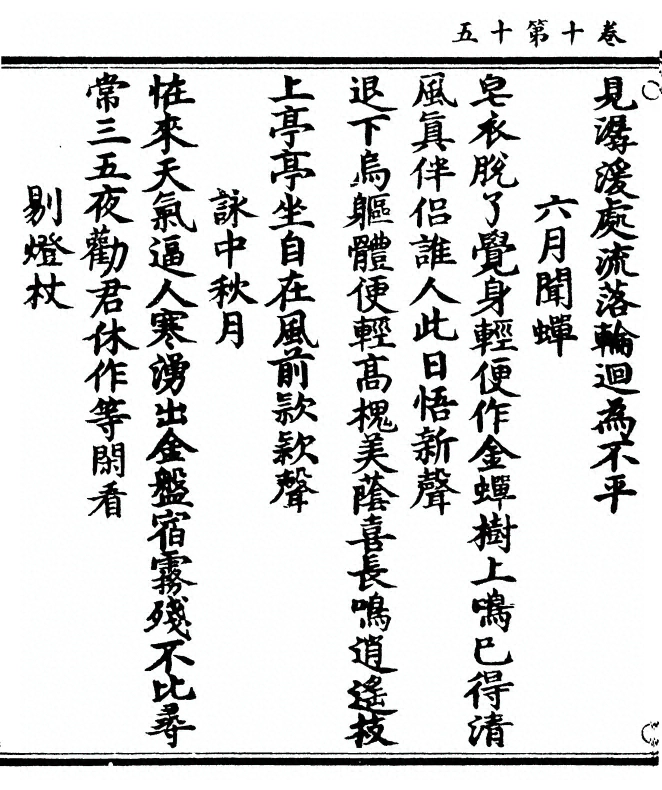 卷十第十五
見潺湲處流落輪迴為不平
六月聞蟬
皂衣脫了覺身輕便作金蟬樹上鳴已得清
風真伴侶誰人此日悟新聲
退下烏軀體便輕高槐美蔭喜長鳴逍遙枝
上亭亭坐自在風前款款聲
詠中秋月
恠來天氣逼人寒湧出金盤宿霧殘不比尋
常三五夜勸君休作等閑看
剔燈杖